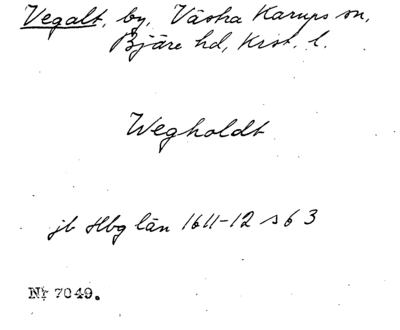 Vegalt, by, Västra Karups sn,
Bjäre hd, Krist. l.
Wegholdt
jb Hbg län 1611-12 s 63
Nr 7049.